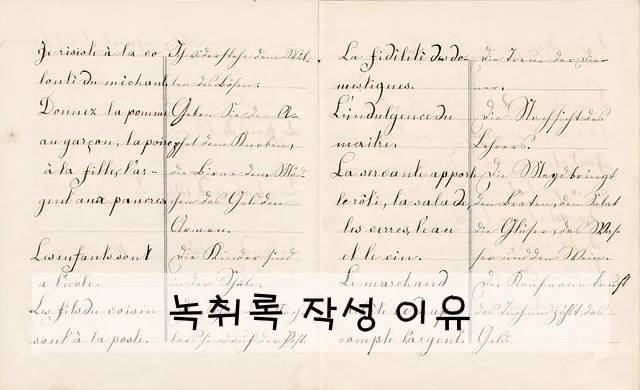 Je résiste à la vo-
lonté du méchant
Donnez la pomme
au garçon, la poire
à la fille, l'ar-
gent aux pauvres
Les enfants sont
à l'école.
Les fils du voisin
sont à la poste.
Ich widerstehe dem Wil-
len des Bösen.
Geben Sie den A-
pfel dem Knaben,
die Birne dem Mäd-
chen das Geld den
Armen.
Die Kinder sind
in der Schule.
auf der Post.
La fidélité des do-
mestiques.
L'indulgence du
maître.
La servante apporte
le rôti, la salade,
les verres, l'eau
et le vin.
Le marchand
compte l'argent.
Die Treue der Die-
ner.
Die Nachsicht des
Lehrers.
Die Magd bringt
den Braten, den Salat
die Gläser, das Was-
ser und den Wein.
Der Kaufmann
das Tuch und zählt das
Geld.
녹취록 작성 이유